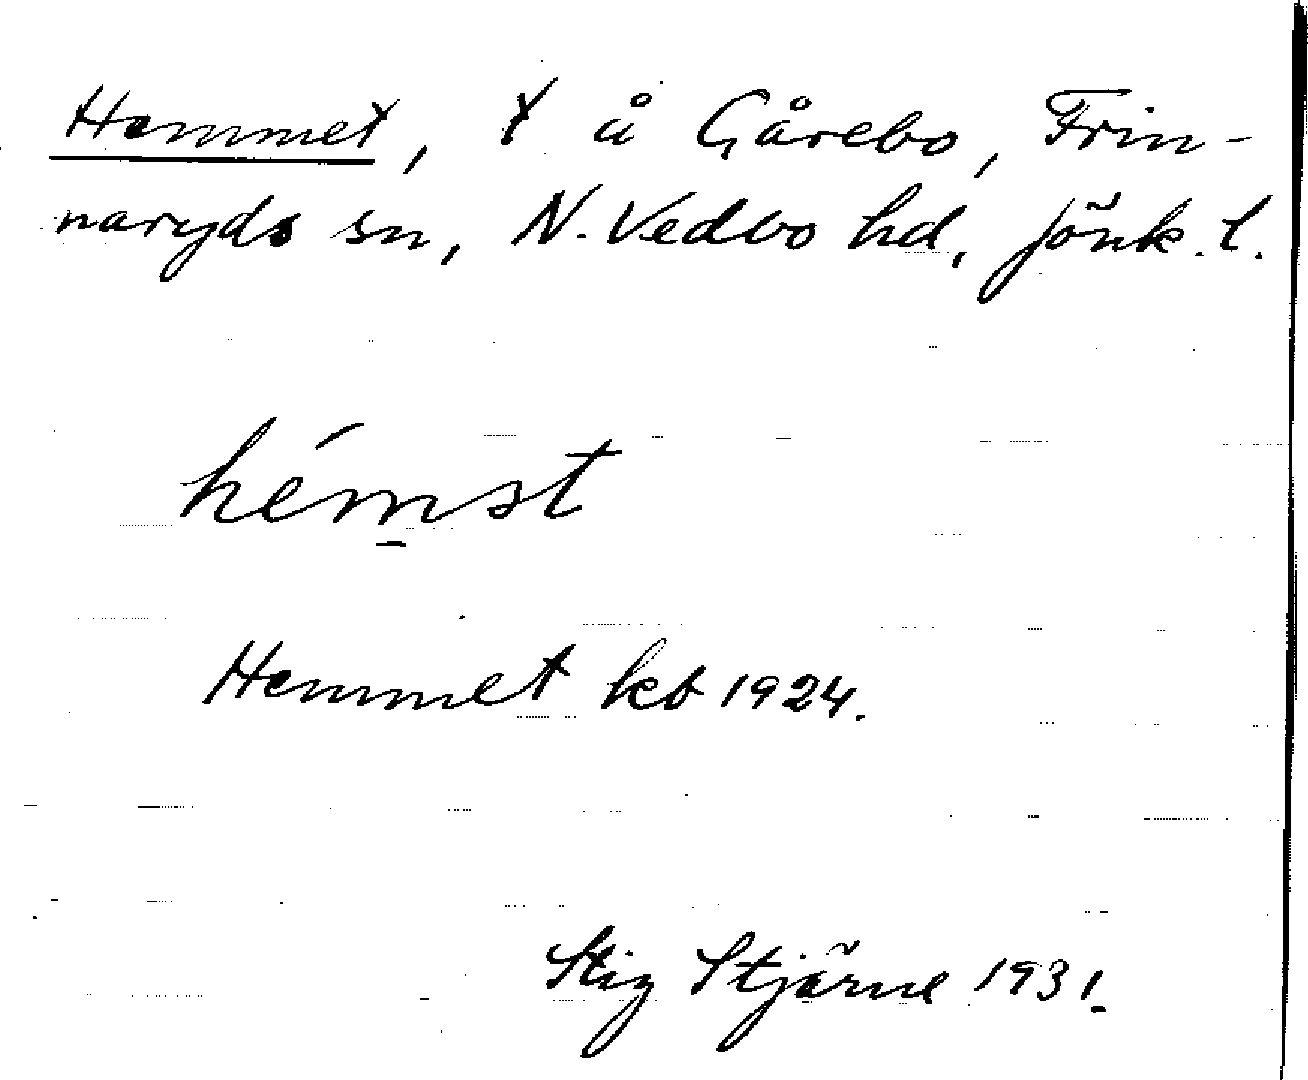 Hemmet, x å Gårebo, Frin-
naryds sn, N. Vedbo hd, Jönk. l.
hém̠st
Hemmet kb 1924.
Stig Stjärne 1931.